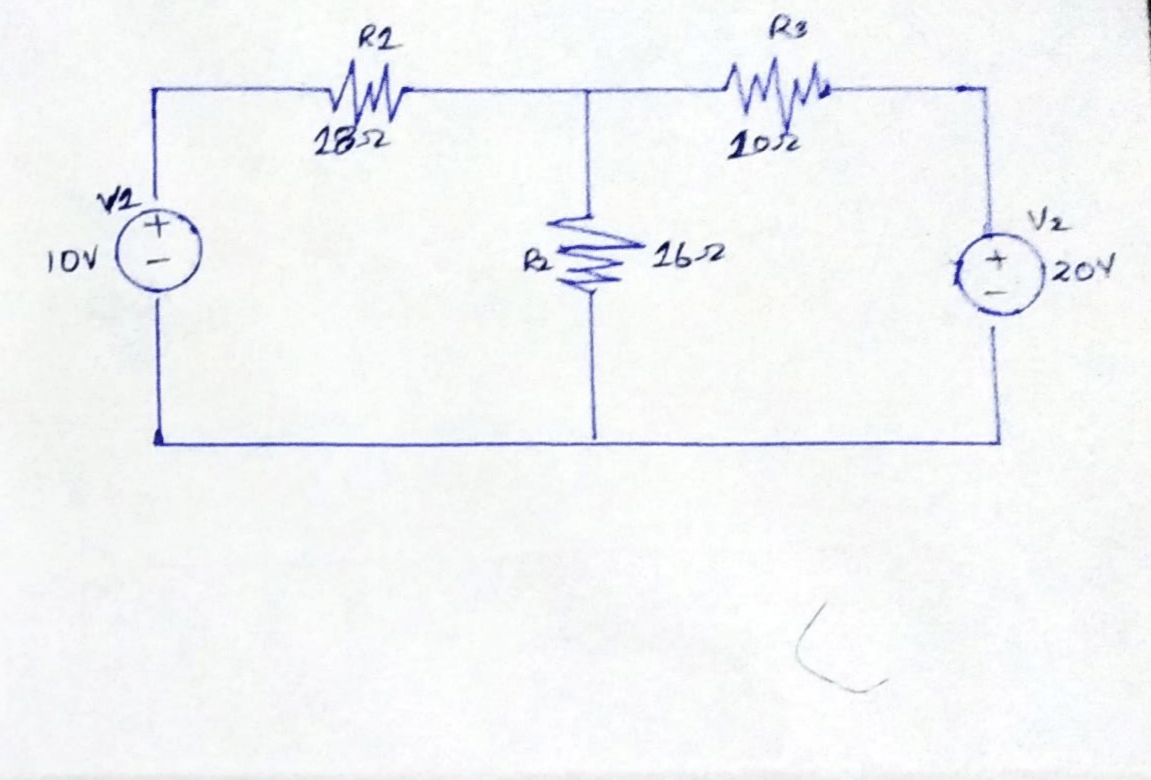 R1
R3
18Ω
10Ω
V1
+
10V
-
R2
16Ω
V2
+
20V
-